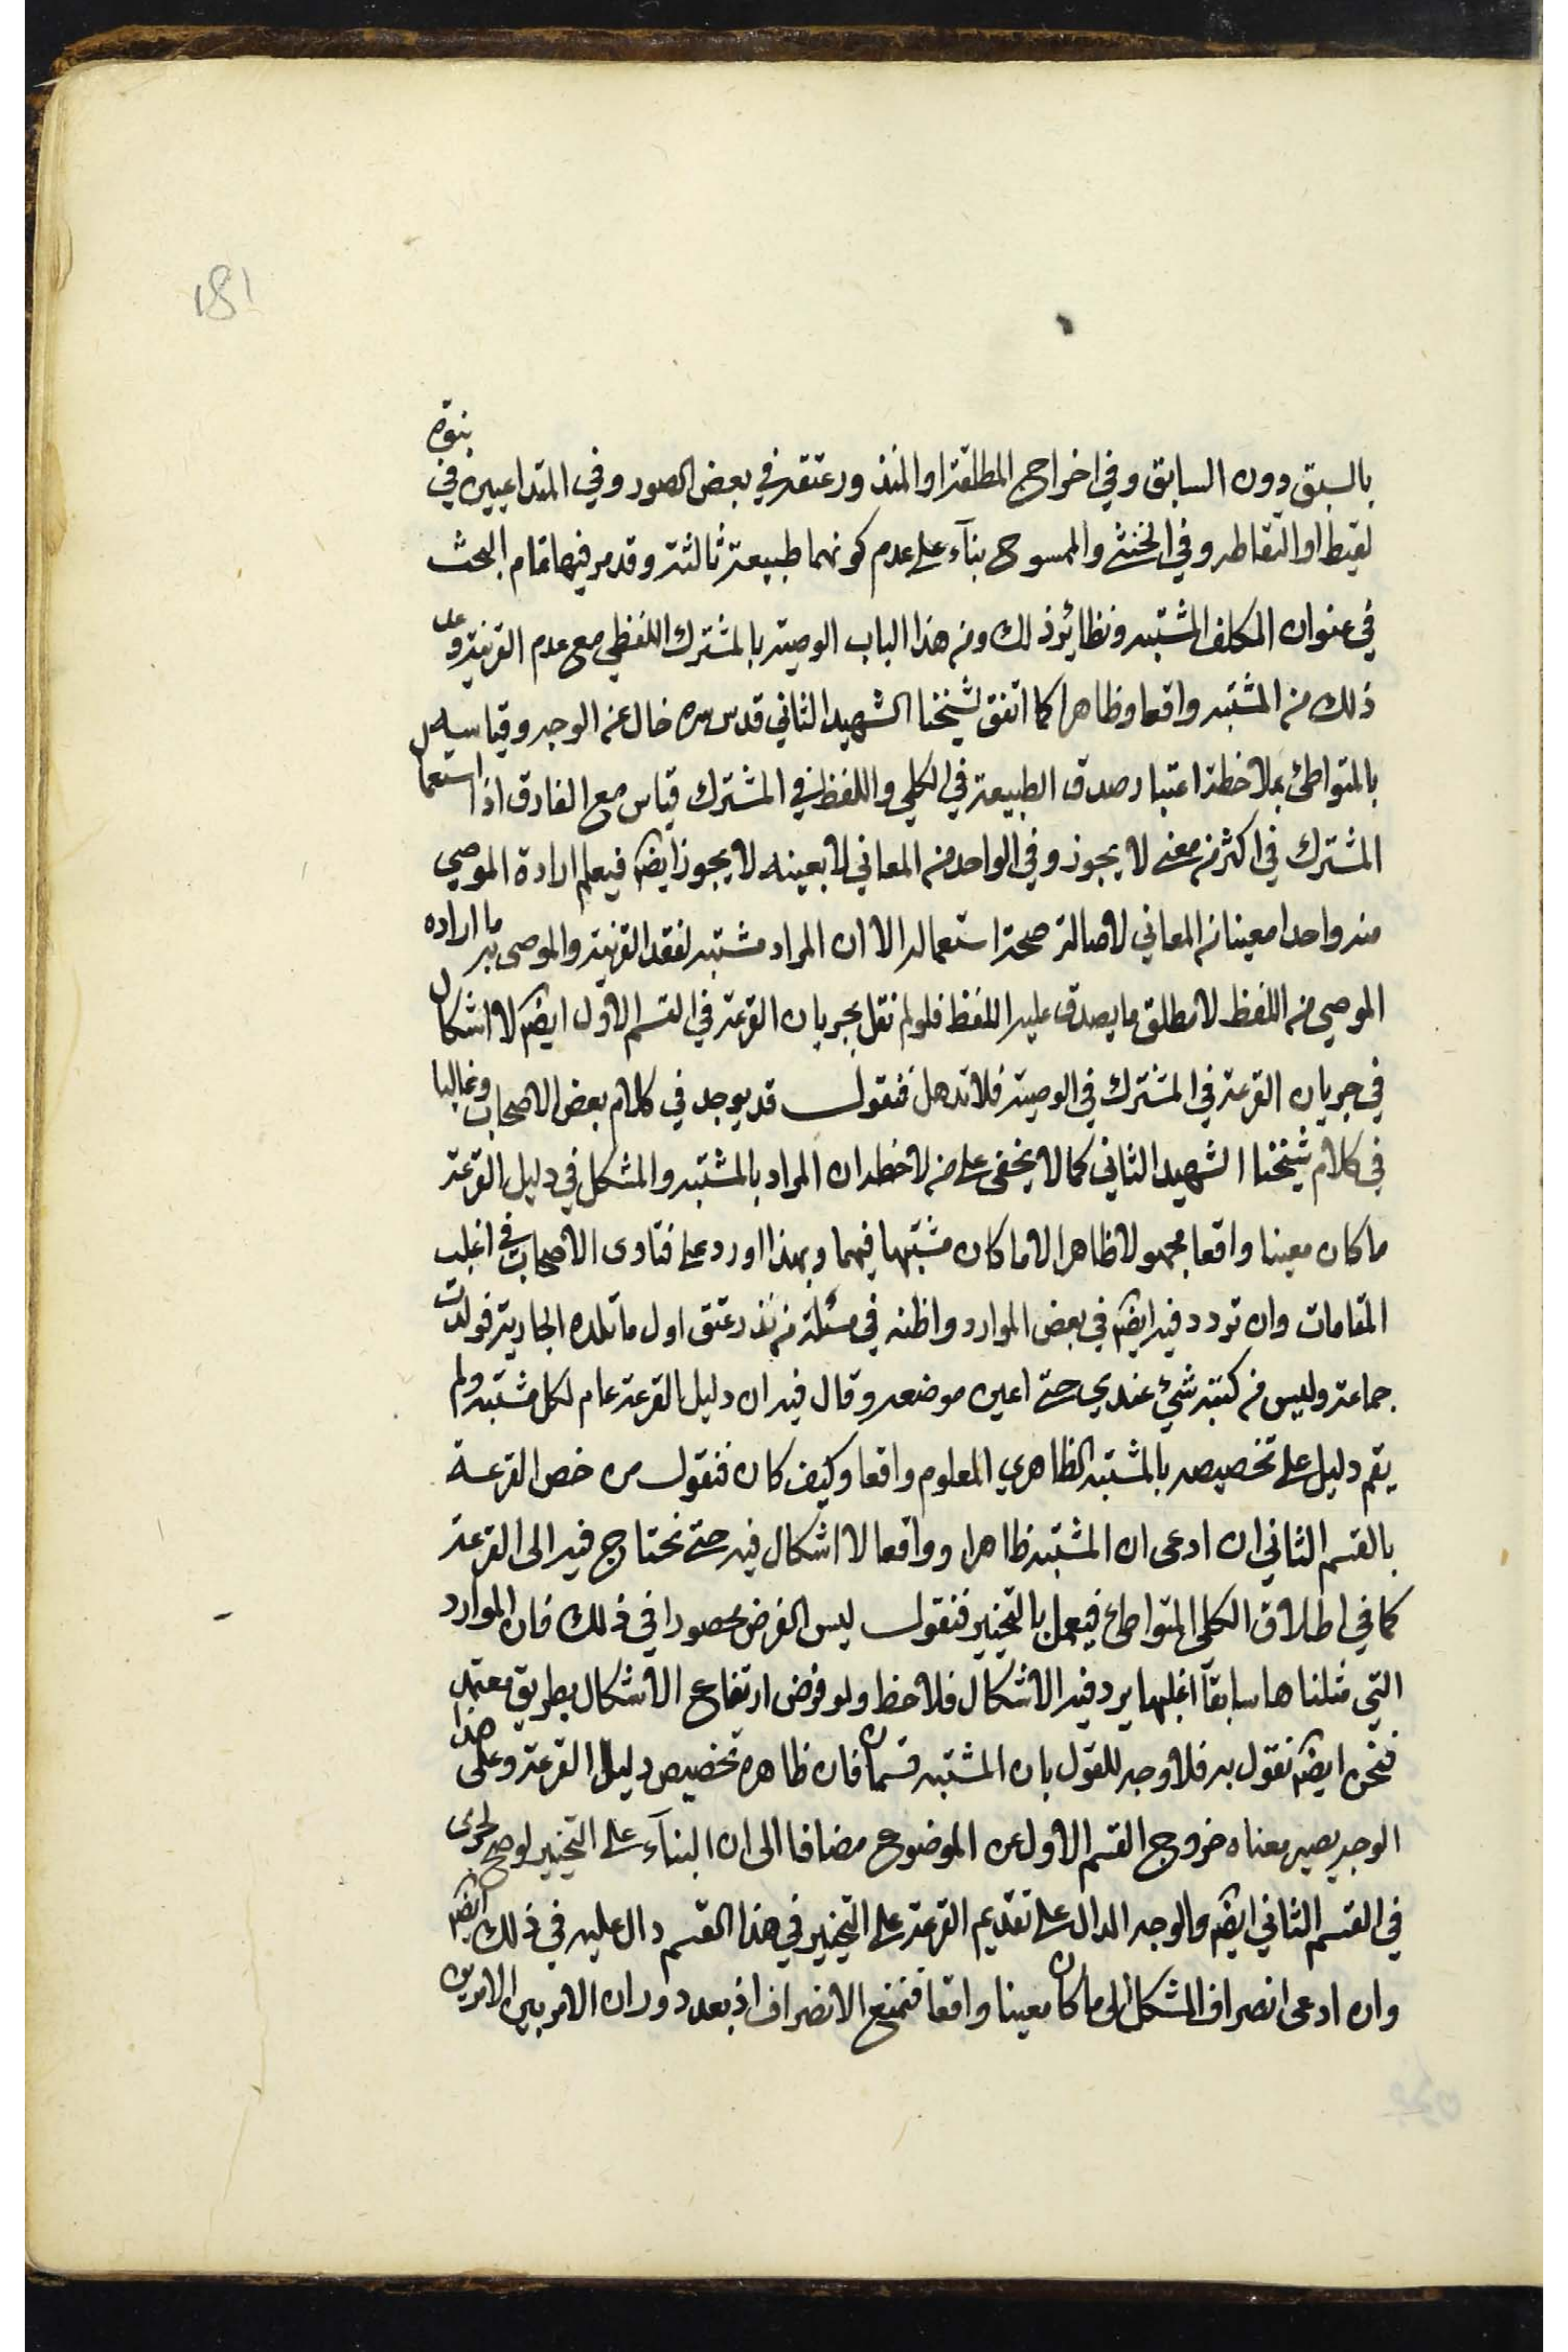 181
بالسبق دون السابق وفي اخراج المطلقة او المنذور عتقه في بعض الصور وفي المتداعيين في بنوة
لقيط او التقاطه وفي الخنثى والممسوح بناء على عدم كونهما طبيعة ثالثة وقد مر فيها تمام البحث
في عنوان المكلف المشتبه ونظائر ذلك ومن هذا الباب الوصية بالمشترك اللفظي مع عدم القرينة وعد
ذلك من المشتبه واقعا وظاهرا كما اتفق لشيخنا الشهيد الثاني قدس سره خال عن الوجه وقياسه
بالمتواطئ بملاحظة اعتبار صدق الطبيعة في الكلي واللفظ في المشترك قياس مع الفارق اذ استعمال
المشترك في اكثر من معنى لا يجوز وفي الواحد من المعاني لا بعينه لا يجوز ايضا فيعلم ارادة الموصي
منه واحدا معينا من المعاني لاصالة صحة استعماله الا ان المراد مشتبه لفقد القرينة والموصى به ما اراده
الموصي من اللفظ لا مطلق ما يصدق عليه اللفظ فلو لم نقل بجريان القرعة في القسم الاول ايضا لا اشكال
في جريان القرعة في المشترك في الوصية فلا تذهل فنقول قد يوجد في كلام بعض الاصحاب وغالبا
في كلام شيخنا الشهيد الثاني كما لا يخفى على من لاحظه ان المراد بالمشتبه والمشكل في دليل القرعة
ما كان معينا واقعا مجهولا ظاهرا لا ما كان مشتبها فيهما وبهذا اورد على فتاوى الاصحاب في اغلب
المقامات وان تردد فيه ايضا في بعض الموارد واظنه في مسئلة من نذر عتق اول ما تلده الجارية فولدت
جماعة وليس من كتبه شيء عندي حتى اعين موضعه وقال فيه ان دليل القرعة عام لكل مشتبه ولم
يقم دليل على تخصيصه بالمشتبه الظاهري المعلوم واقعا وكيف كان فنقول من خص القرعة
بالقسم الثاني ان ادعى ان المشتبه ظاهرا وواقعا لا اشكال فيه حتى نحتاج فيه الى القرعة
كما في اطلاق الكلي المتواطئ فيعمل بالتخيير فنقول ليس الفرض محصورا في ذلك فان الموارد
التي مثلناها سابقا اغلبها يرد فيه الاشكال فلاحظ ولو فرض ارتفاع الاشكال بطريق معتمد
فنحن ايضا نقول به فلا وجه للقول بان المشتبه قسمان فان ظاهره تخصيص دليل القرعة وعلى هذا
الوجه يصير معناه خروج القسم الاول عن الموضوع مضافا الى ان البناء على التخيير لو صح لجرى
في القسم الثاني ايضا والوجه الدال على تقديم القرعة على التخيير في هذا القسم دال عليه في ذلك ايضا
وان ادعى انصراف المشكل الى ما كان معينا واقعا فنمنع الانصراف اذ بعد دوران الامر بين الامرين